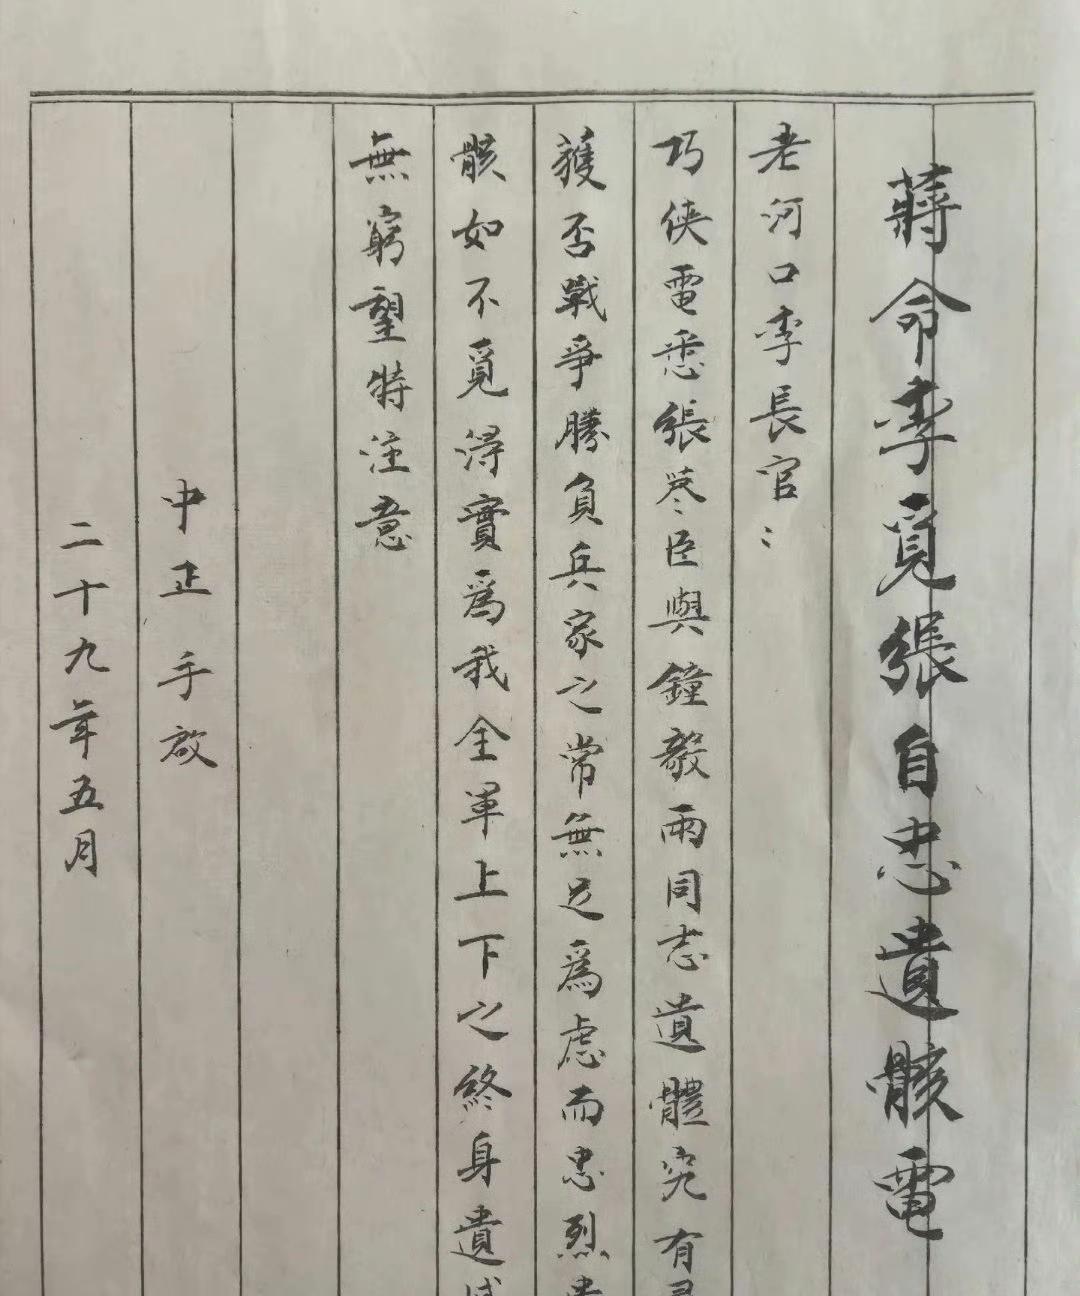 蔣命李覓張自忠遺骸電
老河口李長官：
巧俠電悉張藎臣與鐘毅兩同志遺體究有
獲否戰爭勝負兵家之常無足為慮而忠烈
骸如不覓得實為我全軍上下之終身遺
無窮望特注意
中正手啟
二十九年五月